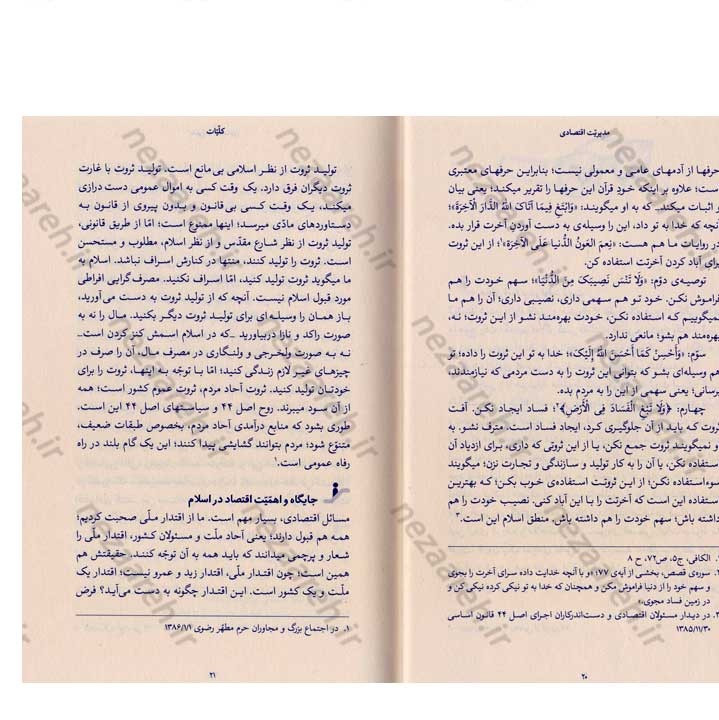 مدیریّت اقتصادی
حرفها از آدمهای عامی و معمولی نیست؛ بنابراین حرفهای معتبری
ست؛ علاوه بر اینکه خود قرآن این حرفها را تقریر میکند؛ یعنی بیان
و اثبات میکند. که به او میگویند: «وَابْتَغِ فِیمَا آتَاکَ اللهُ الدَّارَ الآخِرَةَ»؛
آنچه که خدا به تو داد، این را وسیله‌ی به دست آوردن آخرت قرار بده.
در روایات ما هم هست: «نِعمَ العَونُ الدُّنیا عَلَی الآخِرَة»¹؛ از این ثروت
برای آباد کردن آخرتت استفاده کن.
توصیه‌ی دوّم: «وَلَا تَنْسَ نَصِیبَکَ مِنَ الدُّنْیَا»؛ سهم خودت را هم
فراموش نکن. خود تو هم سهمی داری، نصیبی داری؛ آن را هم ما
نمیگوییم که استفاده نکن، خودت بهره‌مند نشو از این ثروت؛ نه،
بهره‌مند هم بشو؛ مانعی ندارد.
سوّم: «وَأَحْسِنْ کَمَا أَحْسَنَ اللهُ إِلَیْکَ»؛ خدا به تو این ثروت را داده؛ تو
هم وسیله‌ای بشو که بتوانی این ثروت را به دست مردمی که نیازمندند،
برسانی؛ یعنی سهمی از این را به مردم بده.
چهارم: «وَلَا تَبْغِ الْفَسَادَ فِی الْأَرْضِ»²؛ فساد ایجاد نکن. آفت
ثروت که باید از آن جلوگیری کرد، ایجاد فساد است. مترف نشو. به
و نمیگویند ثروت جمع نکن، یا از این ثروتی که داری، برای ازدیاد آن
ستفاده نکن، یا آن را به کار تولید و سازندگی و تجارت نزن؛ میگویند
سوءاستفاده نکن؛ از این ثروتت استفاده‌ی خوب بکن؛ که بهترین
ستفاده این است که آخرتت را با این آباد کنی. نصیب خودت را هم
داشته باش؛ سهم خودت را هم داشته باش. منطق اسلام این است.³
۱. الکافی، ج۵، ص۷۲، ح ۸
۲. سوره‌ی قصص، بخشی از آیه‌ی ۷۷؛ «و با آنچه خدایت داده سرای آخرت را بجوی
و سهم خود را از دنیا فراموش مکن و همچنان که خدا به تو نیکی کرده نیکی کن و
در زمین فساد مجوی.»
۳. در دیدار مسئولان اقتصادی و دست‌اندرکاران اجرای اصل ۴۴ قانون اساسی
۱۳۸۵/۱۱/۳۰
۲۰
کلّیّات
تولید ثروت از نظر اسلامی بی‌مانع است. تولید ثروت با غارت
ثروت دیگران فرق دارد. یک وقت کسی به اموال عمومی دست درازی
میکند، یک وقت کسی بی‌قانون و بدون پیروی از قانون به
دستاوردهای مادّی میرسد؛ اینها ممنوع است؛ امّا از طریق قانونی،
تولید ثروت از نظر شارع مقدّس و از نظر اسلام، مطلوب و مستحسن
است. ثروت را تولید کنند، منتها در کنارش اسراف نباشد. اسلام به
ما میگوید ثروت تولید کنید، امّا اسراف نکنید. مصرف‌گرایی افراطی
مورد قبول اسلام نیست. آنچه که از تولید ثروت به دست می‌آورید،
باز همان را وسیله‌ای برای تولید ثروت دیگر بکنید. مال را نه به
صورت راکد و نازا دربیاورید ـ که در اسلام اسمش کنز کردن است ـ
نه به صورت ولخرجی و ولنگاری در مصرف مال، آن را صرف در
چیزهای غیر لازم زندگی کنید؛ امّا با توجّه به اینها، ثروت را برای
خودتان تولید کنید. ثروت آحاد مردم، ثروت عموم کشور است؛ همه
از آن سود میبرند. روح اصل ۴۴ و سیاستهای اصل ۴۴ این است.
طوری بشود که منابع درآمدی آحاد مردم، بخصوص طبقات ضعیف،
متنوّع شود؛ مردم بتوانند گشایشی پیدا کنند؛ این یک گام بلند در راه
رفاه عمومی است.¹
جایگاه و اهمّیّت اقتصاد در اسلام
مسائل اقتصادی، بسیار مهم است. ما از اقتدار ملّی صحبت کردیم؛
همه هم قبول دارند؛ یعنی آحاد ملّت و مسئولان کشور، اقتدار ملّی را
شعار و پرچمی میدانند که باید همه به آن توجّه کنند. حقیقتش هم
همین است؛ چون اقتدار ملّی، اقتدار زید و عمرو نیست؛ اقتدار یک
ملّت و یک کشور است. این اقتدار چگونه به دست می‌آید؟ فرض
۱. در اجتماع بزرگ و مجاوران حرم مطهّر رضوی ۱۳۸۶/۱/۱
۲۱
nezaareh.ir